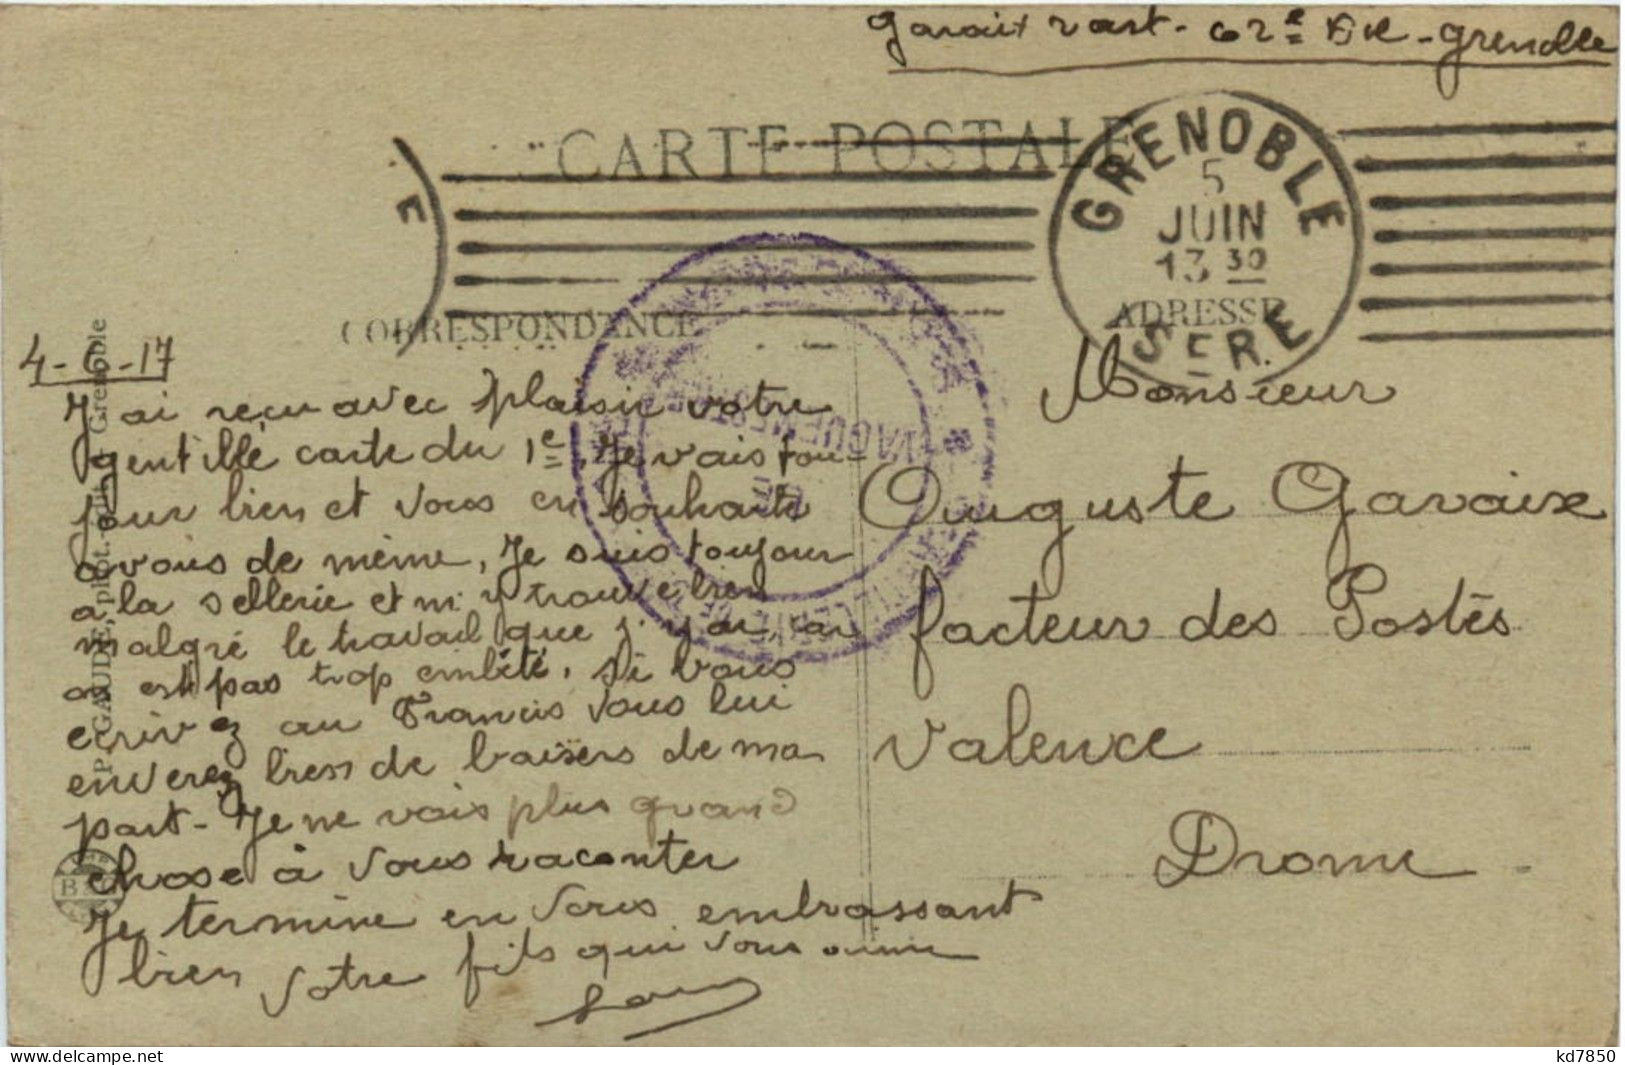 Gavaix 2 art - 62e Bie - Grenoble
CARTE POSTALE
GRENOBLE
5
JUIN
13 30
ISERE
E
CORRESPONDANCE
ADRESSE
4-6-17
J'ai reçu avec plaisir votre
gentille carte du 1e, Je vais tou-
jour bien et vous en souhaite
a vous de même, Je suis toujour
a la sellerie et m'y trouve bien
malgré le travail que j'y ai, car
on est pas trop embêté. Si vous
ecrivez au Francis vous lui
enverez bien de baisers de ma
part - Je ne vais plus quand
chose à vous raconter
Je termine en vous embrassant
bien votre fils qui vous aime
Monsieur
Auguste Gavaix
facteur des Postes
Valence
Drome
P. GAUDE, phot.-édit., Grenoble
B
kd7850